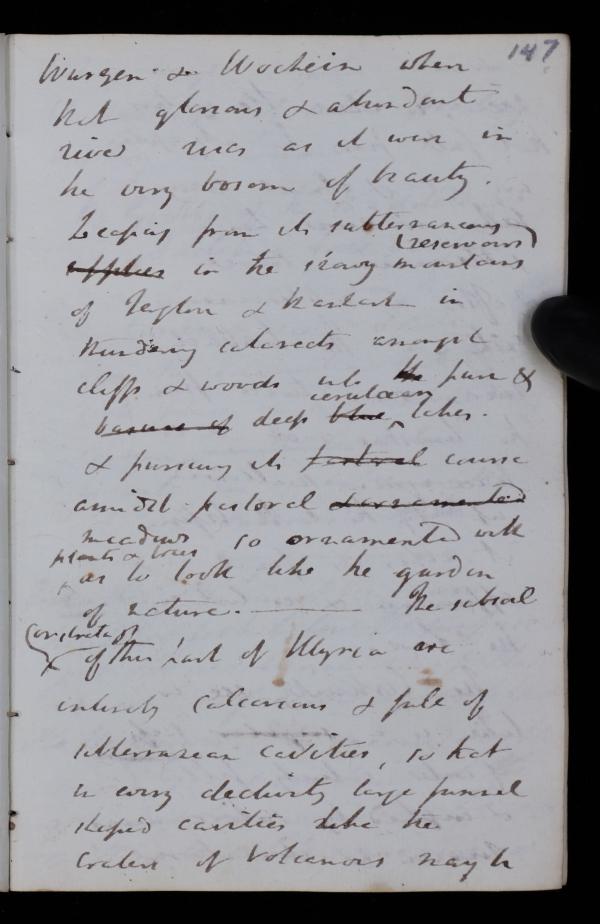 147
Wurzen & Wochein when
that glorious & abundant
river rises as it were in
the very bosom of beauty.
Leaping from its subterraneous
(reservoirs)
supplies in the snowy mountains
of Terglou & Manhart in
thundering cataracts amongst
cliffs & woods into the pure &
cerulean
basins of deep blue lakes.
& pursuing its pastoral course
amidst pastoral & ornamented
meadows so ornamented with
plants & trees
as to look like the garden
of nature. — The subsoil
(or strata of
of this part of Illyria are
entirely calcareous & full of
subterranean cavities, so that
in every declivity large funnel
shaped cavities like the
craters of Volcanoes may be